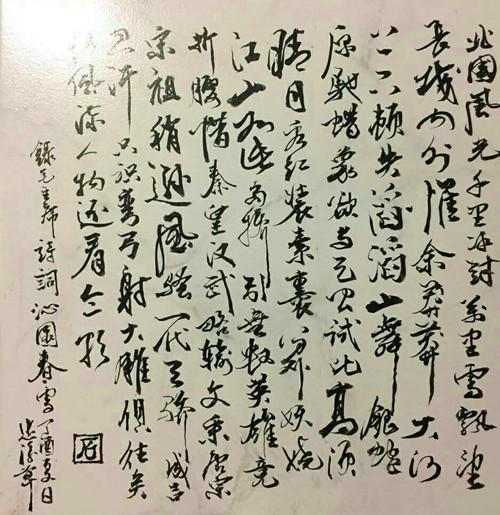 北國風光千里冰封萬里雪飘望
長城内外惟余莽莽大河
上下頓失滔滔山舞銀蛇
原馳蜡象欲与天公試比高須
晴日看红装素裹分外妖娆
江山如此多娇引無數英雄竞
折腰惜秦皇汉武略输文采唐宗
宋祖稍遜風騷一代天骄成吉
思汗只識弯弓射大雕俱往矣
數風流人物还看今朝
錄毛主席詩詞沁園春雪丁酉夏日